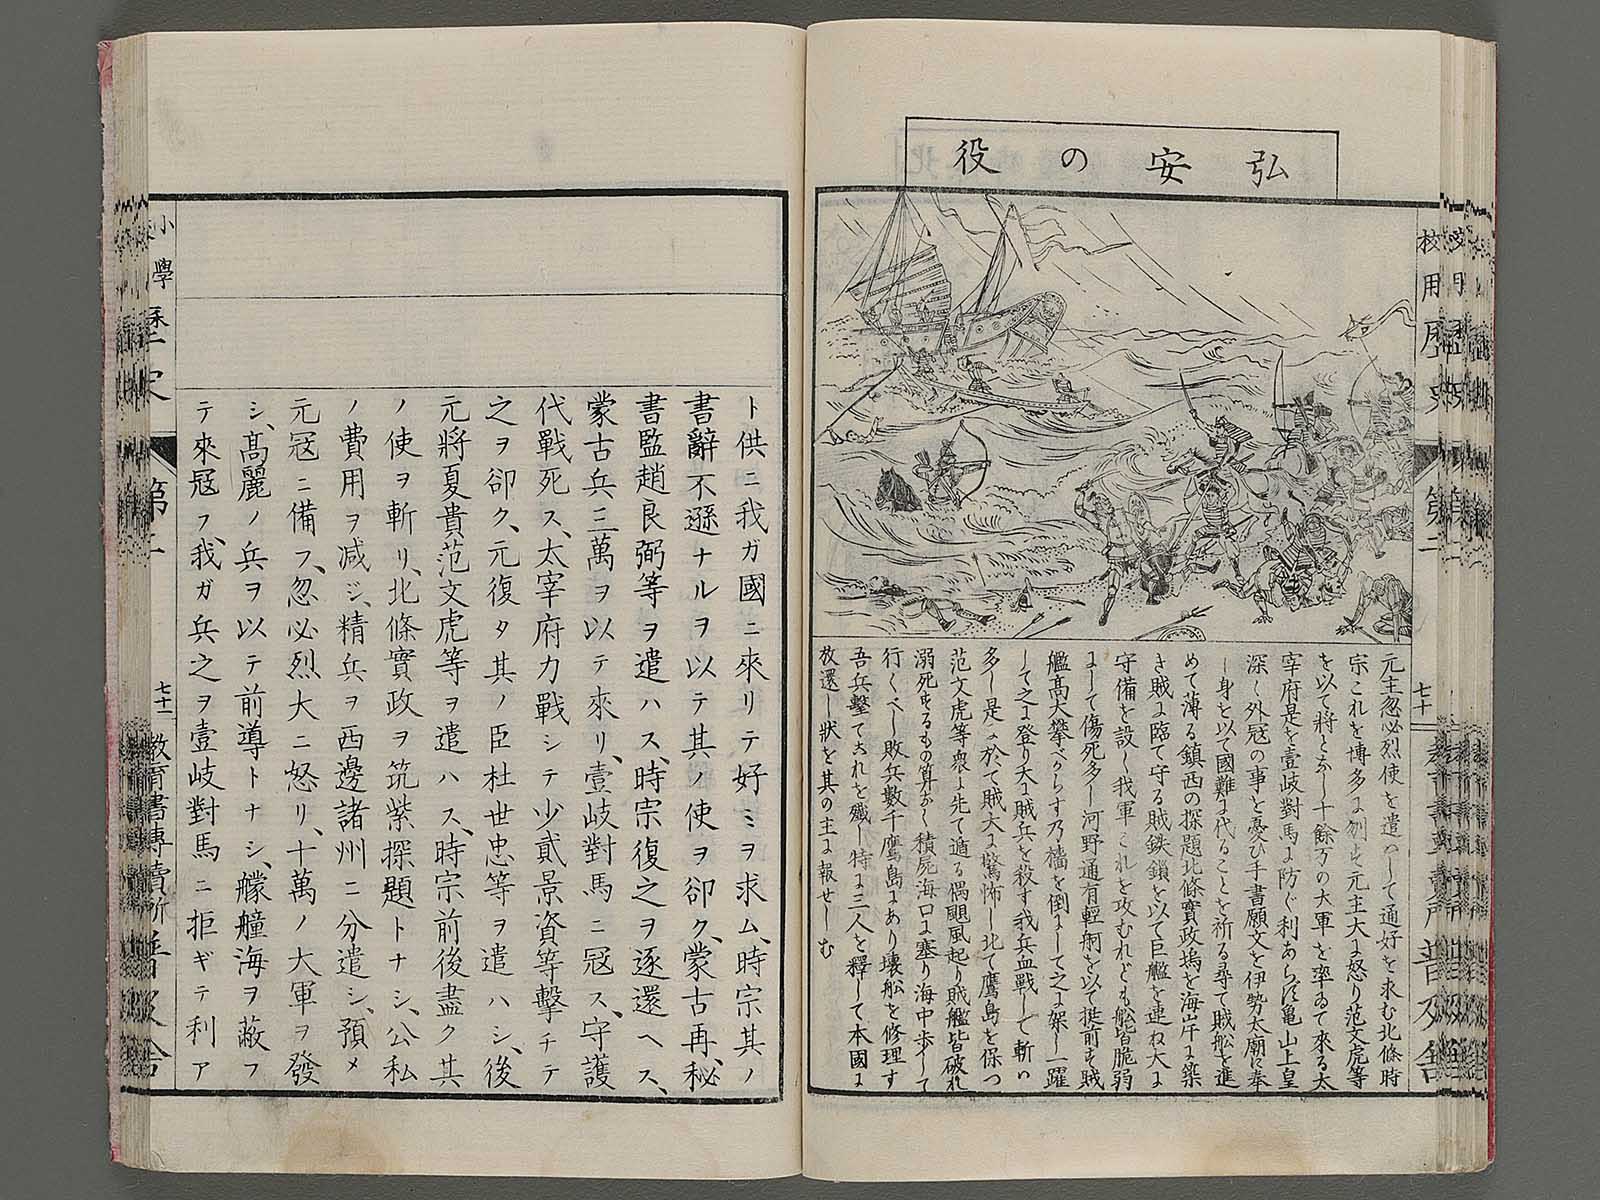 弘安の役
元主忽必烈使を遣はして通好を求む北條時
宗これを博多に刎す元主大に怒り范文虎等
を以て將となし十餘万の大軍を率ゐて來る太
宰府是を壹岐對馬に防ぐ利あらず亀山上皇
深く外冦の事を憂ひ手書願文を伊勢太廟に奉
し身を以て國難に代ることを祈る尋て賊舩を進
めて薄る鎮西の探題北條實政塢を海岸に築
き賊に臨て守る賊鉄鎖を以て巨艦を連ね大に
守備を設く我軍これを攻むれども舩皆脆弱
にして傷死多し河野通有輕舸を以て挺前す賊
艦髙大攀べからす乃檣を倒にして之に架し一躍
して之に登り大に賊兵を殺す我兵血戰して斬い
多し是に於て賊大に驚怖し北て鷹島を保つ
范文虎等衆に先て遁る偶颶風起り賊艦皆破れ
溺死するもの算なく積屍海口に塞り海中歩して
行くべし敗兵數千鷹島にあり壊舩を修理す
吾兵擊てこれを殲し特に三人を釋して本國に
放還し狀を其の主に報せしむ
校用歷史
第二
七十
普及舍
ト供ニ我ガ國ニ來リテ好ミヲ求ム、時宗其ノ
書辭不遜ナルヲ以テ其ノ使ヲ卻ク、蒙古再、秘
書監趙良弼等ヲ遣ハス、時宗復之ヲ逐還ヘス、
蒙古兵三萬ヲ以テ來リ、壹岐對馬ニ冦ス、守護
代戰死ス、太宰府力戰シテ少貳景資等擊チテ
之ヲ卻ク、元復タ其ノ臣杜世忠等ヲ遣ハシ、後
元將夏貴范文虎等ヲ遣ハス、時宗前後盡ク其
ノ使ヲ斬リ、北條實政ヲ筑紫探題トナシ、公私
ノ費用ヲ减ジ、精兵ヲ西邊諸州ニ分遣シ、預メ
元冦ニ備フ、忽必烈大ニ怒リ、十萬ノ大軍ヲ發
シ、髙麗ノ兵ヲ以テ前導トナシ、艨艟海ヲ蔽フ
テ來冦フ、我ガ兵之ヲ壹岐對馬ニ拒ギテ利ア
小學
第二
七十一
教育書專賣所